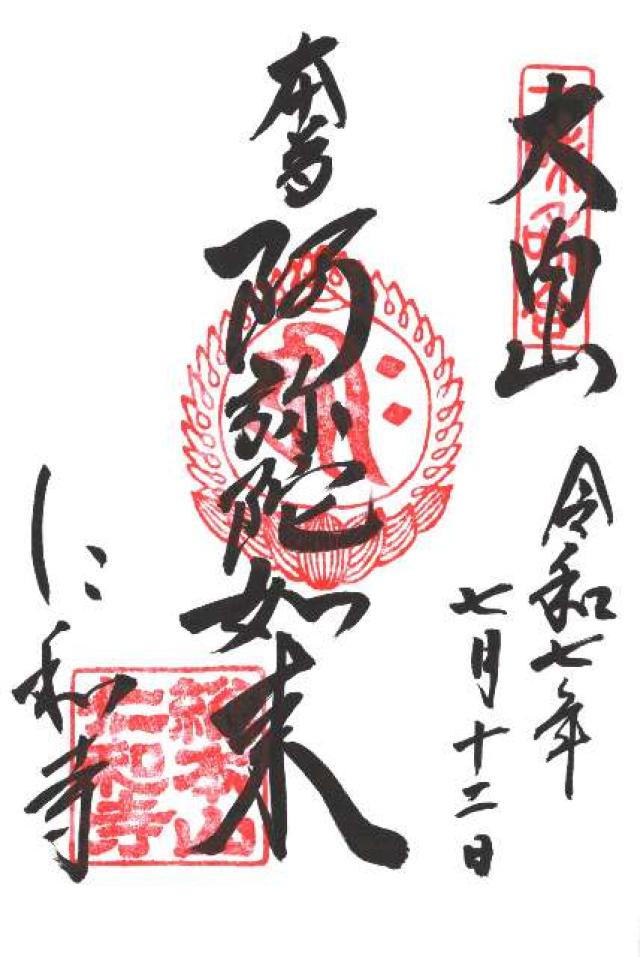 大内山
令和七年
七月十二日
本尊
阿弥陀如来
仁和寺
総本山
仁和寺